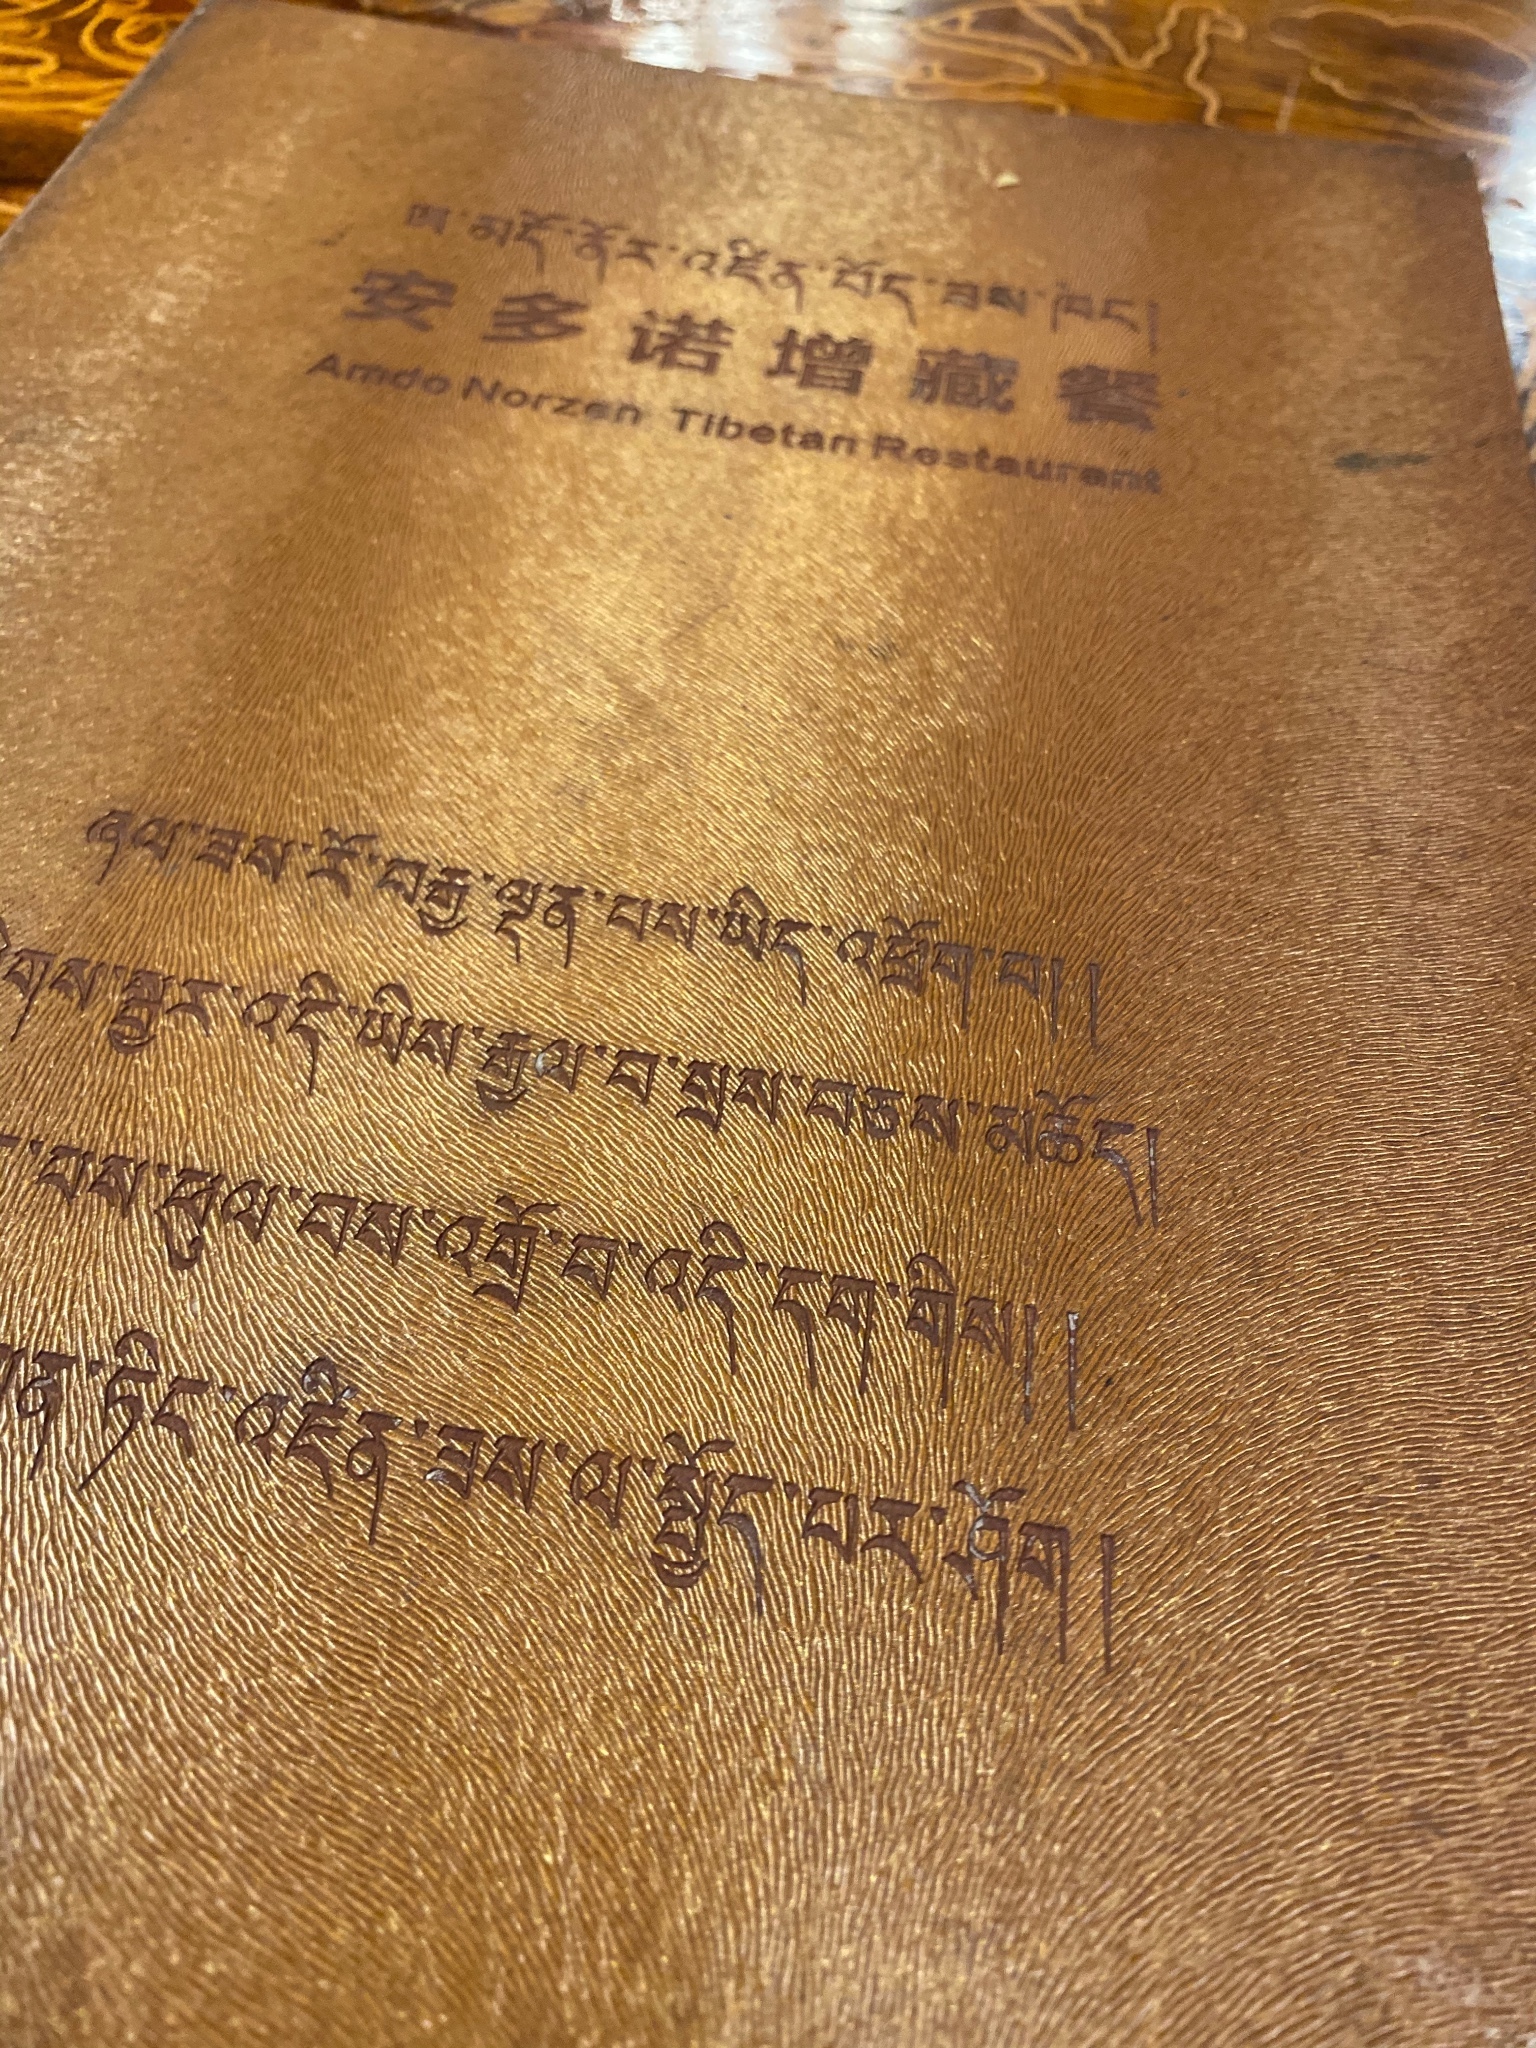 ཨ་མདོ་ནོར་འཛིན་བོད་ཟས་ཁང།
安多诺增藏餐
Amdo Norzen Tibetan Restaurant
ཞལ་ཟས་རོ་བརྒྱ་ལྡན་པས་ཡིད་འཕྲོག་པ། །
ལེགས་སྦྱར་འདི་ཡིས་རྒྱལ་བ་སྲས་བཅས་མཆོད།
པས་ཕུལ་བས་འགྲོ་བ་འདི་དག་གིས། །
ཏིང་འཛིན་ཟས་ལ་སྤྱོད་པར་ཤོག །